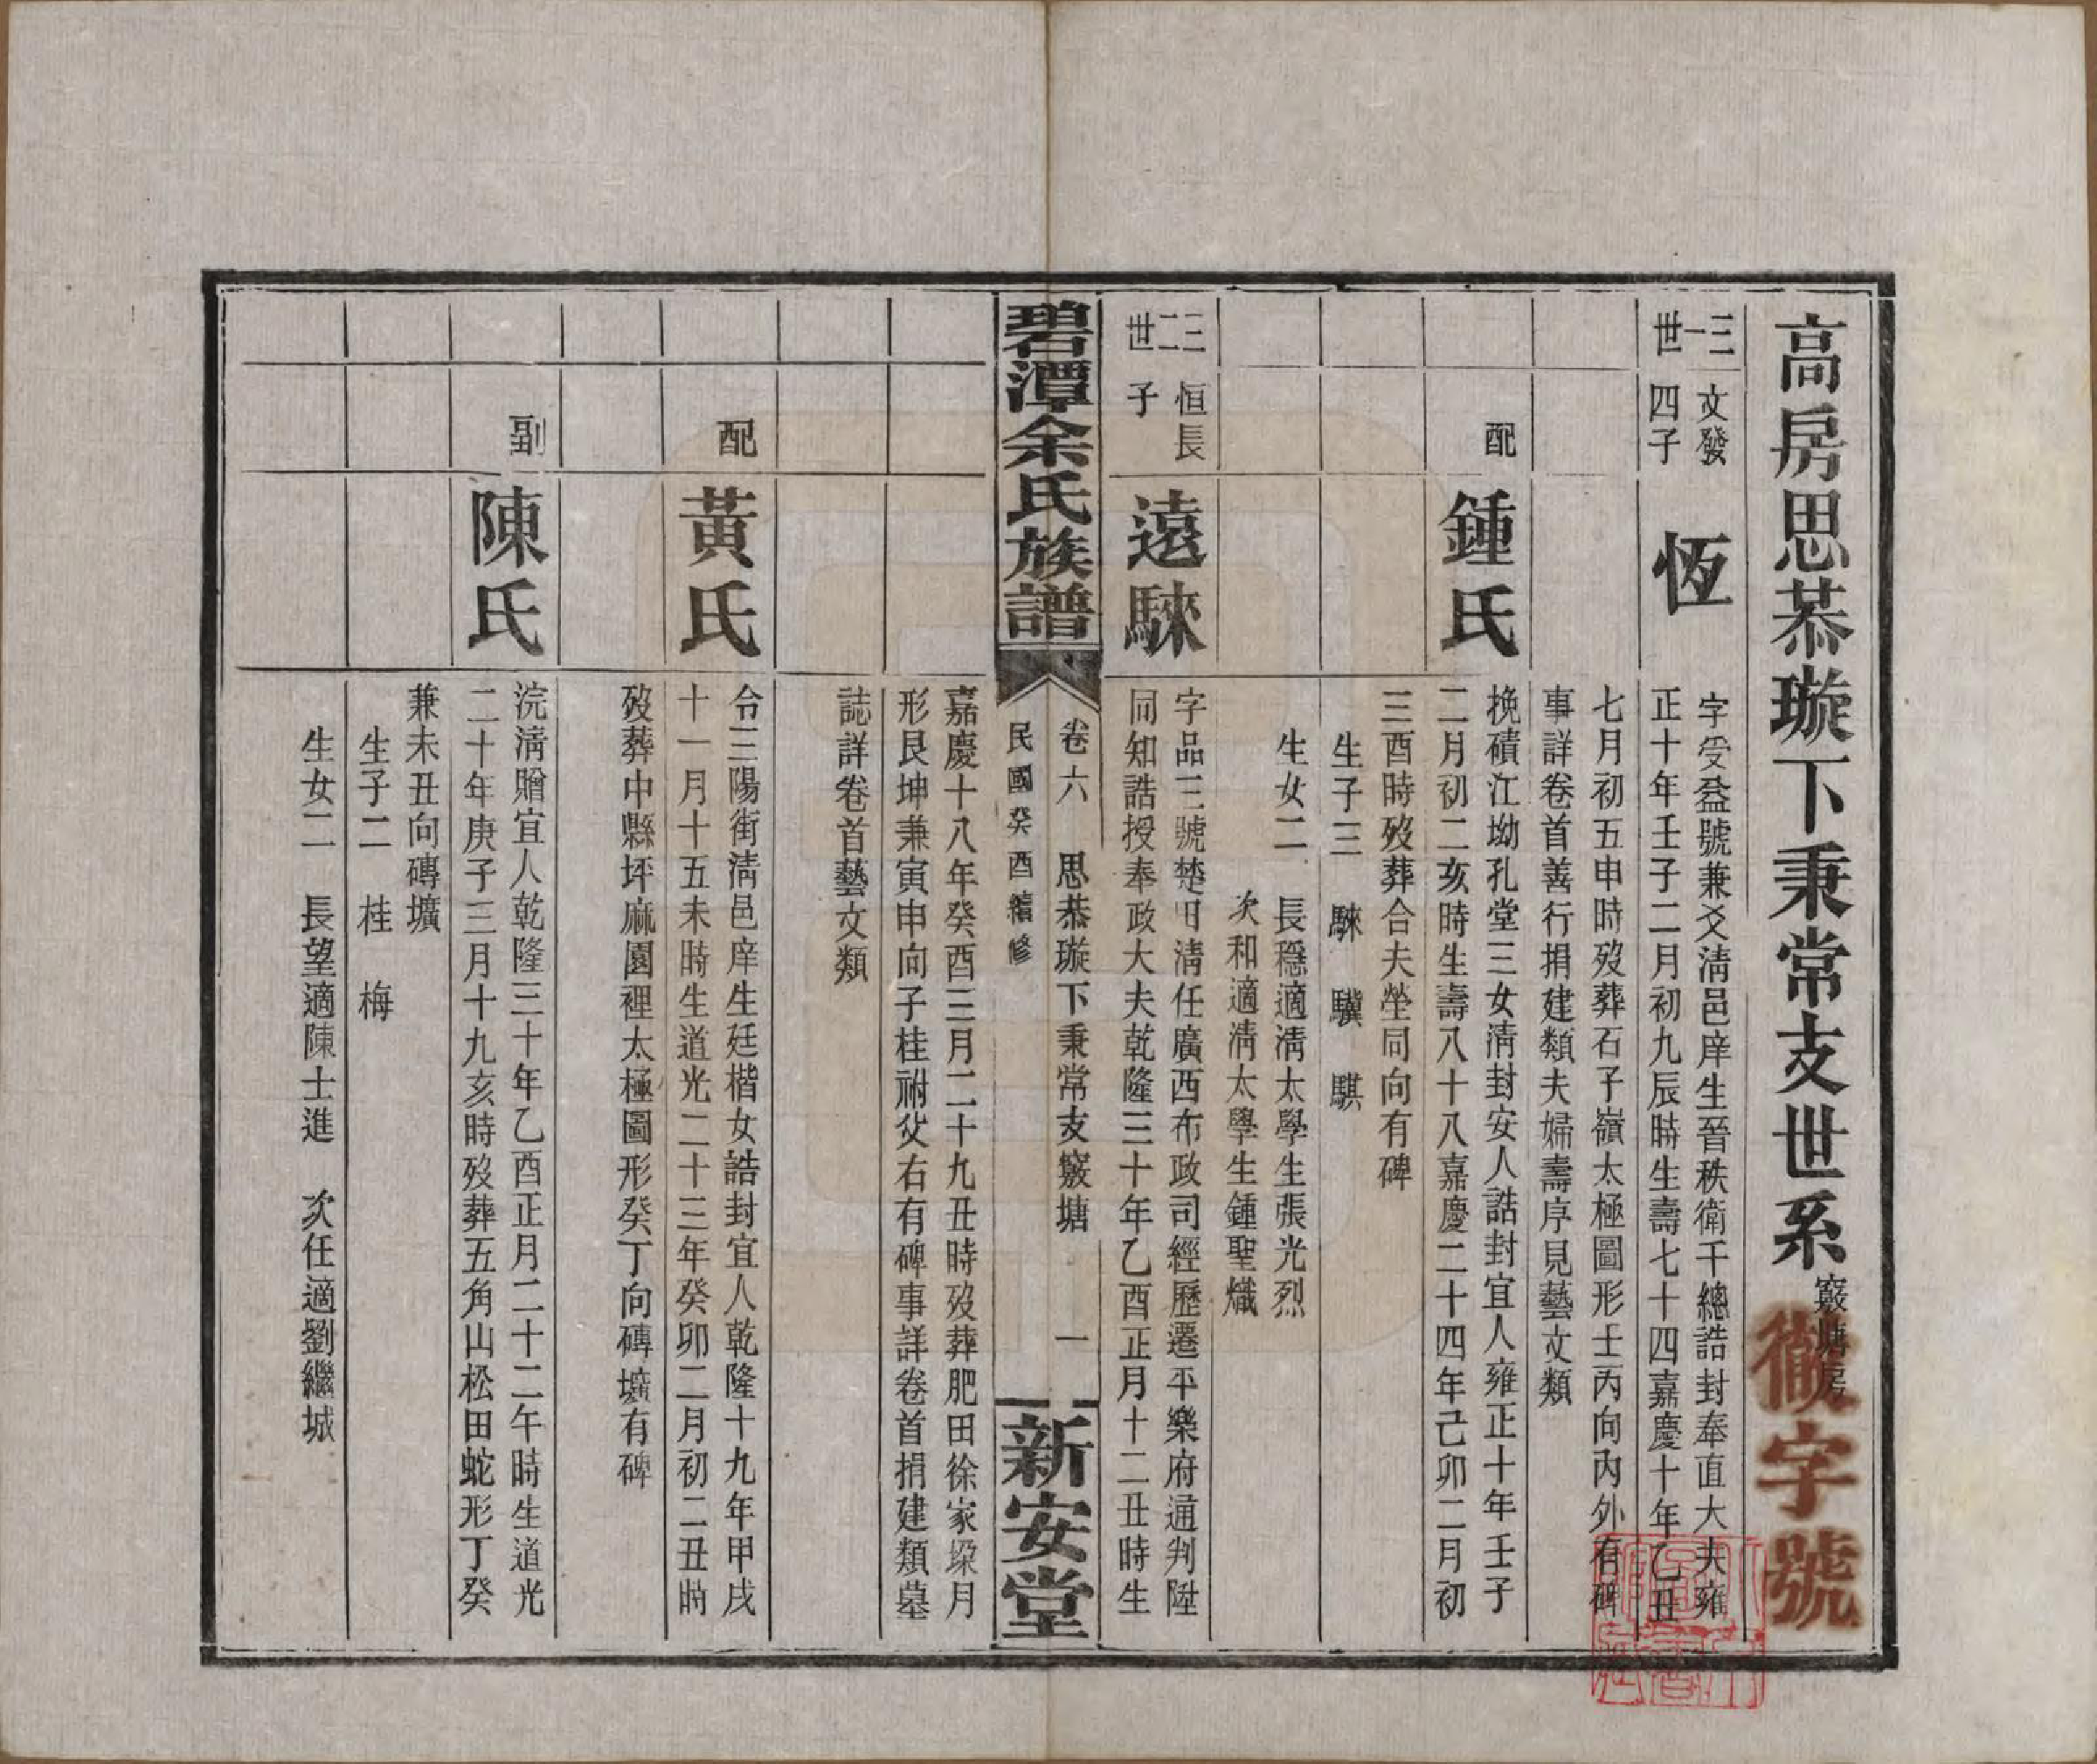 高房思恭璇下秉常支世系 竅塘房
徽字號
三一世
文發四子
恆
字受益號兼爻清邑庠生晉秩衛千總誥封奉直大夫雍
正十年壬子二月初九辰時生壽七十四嘉慶十年乙丑
七月初五申時歿葬石子嶺太極圖形壬丙向內外有碑
事詳卷首善行捐建類夫婦壽序見藝文類
配
鍾氏
挽磧江坳孔堂三女清封安人誥封宜人雍正十年壬子
二月初二亥時生壽八十八嘉慶二十四年己卯二月初
三酉時歿葬合夫塋同向有碑
生子三 騋 驥 騏
生女二 長穩適清太學生張光烈
次和適清太學生鍾聖熾
三二世
恒長子
遠騋
字品三號楚田清任廣西布政司經歷遷平樂府通判陞
同知誥授奉政大夫乾隆三十年乙酉正月十二丑時生
碧潭余氏族譜
卷六 思恭璇下秉常支竅塘 一
民國癸酉續修
新安堂
嘉慶十八年癸酉三月二十九丑時歿葬肥田徐家垛月
形艮坤兼寅申向子桂祔父右有碑事詳卷首捐建類墓
誌詳卷首藝文類
配
黃氏
令三陽街清邑庠生廷楷女誥封宜人乾隆十九年甲戌
十一月十五未時生道光二十三年癸卯二月初二丑時
歿葬中縣坪麻園裡太極圖形癸丁向磚壙有碑
副
陳氏
浣清贈宜人乾隆三十年乙酉正月二十二午時生道光
二十年庚子三月十九亥時歿葬五角山松田蛇形丁癸
兼未丑向磚壙
生子二 桂 梅
生女二 長望適陳士進 次任適劉繼城